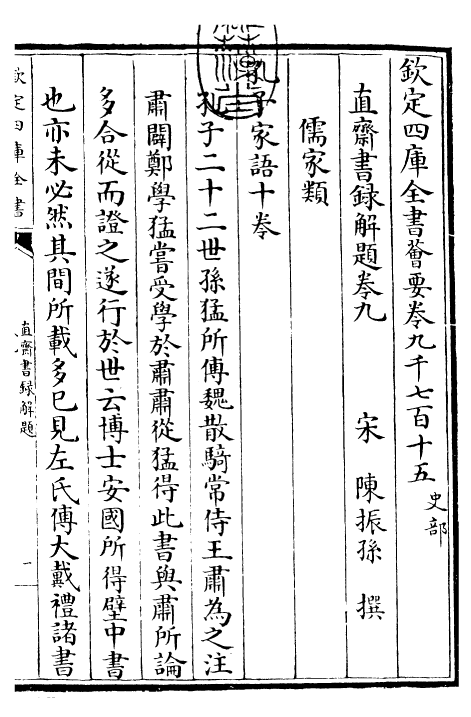 欽定四庫全書薈要卷九千七百十五 史部
直齋書録解題卷九 宋 陳振孫 撰
儒家類
孔子家語十卷
孔子二十二世孫猛所傳魏散騎常侍王肅為之注
肅闢鄭學猛嘗受學於肅肅從猛得此書與肅所論
多合從而證之遂行於世云博士安國所得壁中書
也亦未必然其間所載多已見左氏傳大戴禮諸書
欽定四庫全書
直齋書録解題
一